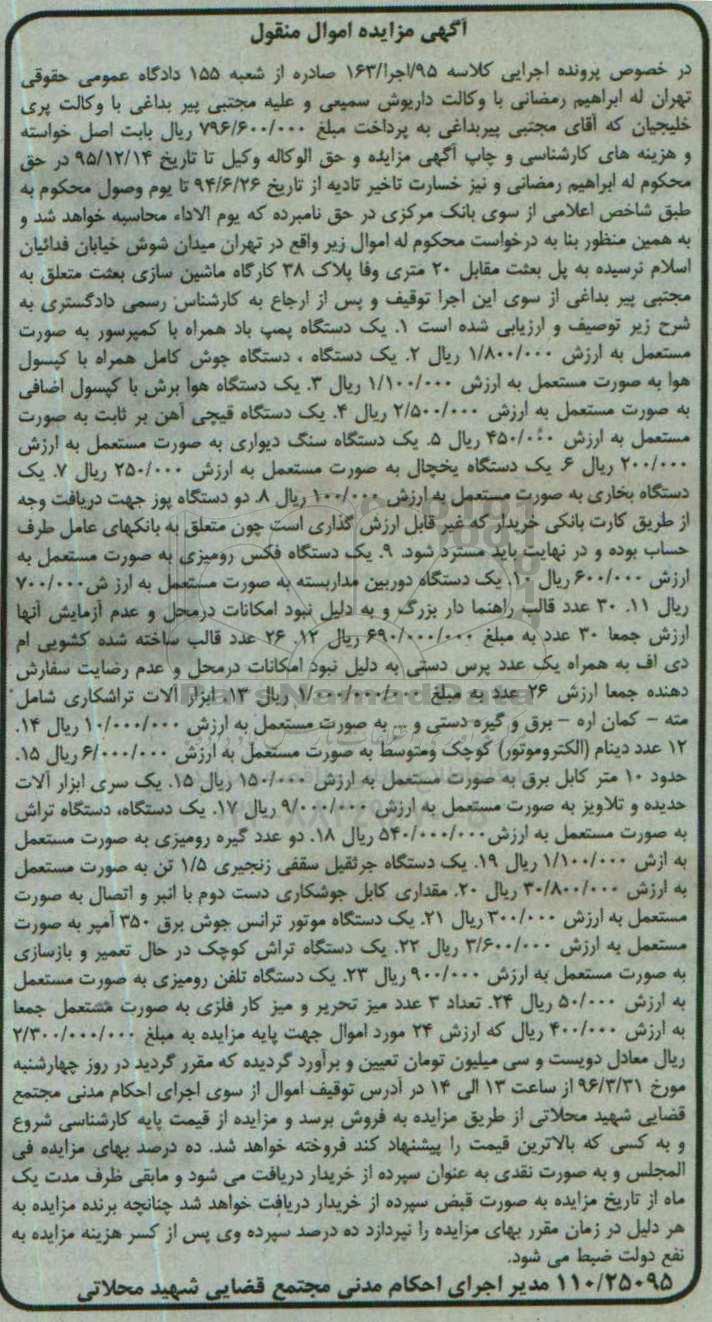 آگهی مزایده اموال منقول
در خصوص پرونده اجرایی کلاسه ۹۵/اجرا/۱۶۳ صادره از شعبه ۱۵۵ دادگاه عمومی حقوقی
تهران له ابراهیم رمضانی با وکالت داریوش سمیعی و علیه مجتبی پیر بداغی با وکالت پری
خلیجیان که آقای مجتبی پیربداغی به پرداخت مبلغ ۷۹۶/۶۰۰/۰۰۰ ریال بابت اصل خواسته
و هزینه های کارشناسی و چاپ آگهی مزایده و حق الوکاله وکیل تا تاریخ ۹۵/۱۲/۱۴ در حق
محکوم له ابراهیم رمضانی و نیز خسارت تاخیر تادیه از تاریخ ۹۴/۶/۲۶ تا یوم وصول محکوم به
طبق شاخص اعلامی از سوی بانک مرکزی در حق نامبرده که یوم الاداء محاسبه خواهد شد و
به همین منظور بنا به درخواست محکوم له اموال زیر واقع در تهران میدان شوش خیابان فدائیان
اسلام نرسیده به پل بعثت مقابل ۲۰ متری وفا پلاک ۳۸ کارگاه ماشین سازی بعثت متعلق به
مجتبی پیر بداغی از سوی این اجرا توقیف و پس از ارجاع به کارشناس رسمی دادگستری به
شرح زیر توصیف و ارزیابی شده است ۱. یک دستگاه پمپ باد همراه با کمپرسور به صورت
مستعمل به ارزش ۱/۸۰۰/۰۰۰ ریال ۲. یک دستگاه ، دستگاه جوش کامل همراه با کپسول
هوا به صورت مستعمل به ارزش ۱/۱۰۰/۰۰۰ ریال ۳. یک دستگاه هوا برش با کپسول اضافی
به صورت مستعمل به ارزش ۲/۵۰۰/۰۰۰ ریال ۴. یک دستگاه قیچی آهن بر ثابت به صورت
مستعمل به ارزش ۴۵۰/۰۰۰ ریال ۵. یک دستگاه سنگ دیواری به صورت مستعمل به ارزش
۲۰۰/۰۰۰ ریال ۶. یک دستگاه یخچال به صورت مستعمل به ارزش ۲۵۰/۰۰۰ ریال ۷. یک
دستگاه بخاری به صورت مستعمل به ارزش ۱۰۰/۰۰۰ ریال ۸. دو دستگاه پوز جهت دریافت وجه
از طریق کارت بانکی خریدار که غیر قابل ارزش گذاری است چون متعلق به بانکهای عامل طرف
حساب بوده و در نهایت باید مسترد شود. ۹. یک دستگاه فکس رومیزی به صورت مستعمل به
ارزش ۶۰۰/۰۰۰ ریال ۱۰. یک دستگاه دوربین مداربسته به صورت مستعمل به ارز ش۷۰۰/۰۰۰
ریال ۱۱. ۳۰ عدد قالب راهنما دار بزرگ و به دلیل نبود امکانات درمحل و عدم آزمایش آنها
ارزش جمعا ۳۰ عدد به مبلغ ۶۹۰/۰۰۰/۰۰۰ ریال ۱۲. ۲۶ عدد قالب ساخته شده کشویی ام
دی اف به همراه یک عدد پرس دستی به دلیل نبود امکانات درمحل و عدم رضایت سفارش
دهنده جمعا ارزش ۲۶ عدد به مبلغ ۱/۰۰۰/۰۰۰/۰۰۰ ریال ۱۳. ابزار آلات تراشکاری شامل
مته - کمان اره - برق و گیره دستی و ... به صورت مستعمل به ارزش ۱۰/۰۰۰/۰۰۰ ریال ۱۴.
۱۲ عدد دینام (الکتروموتور) کوچک ومتوسط به صورت مستعمل به ارزش ۶/۰۰۰/۰۰۰ ریال ۱۵.
حدود ۱۰ متر کابل برق به صورت مستعمل به ارزش ۱۵۰/۰۰۰ ریال ۱۵. یک سری ابزار آلات
حدیده و تلاویز به صورت مستعمل به ارزش ۹/۰۰۰/۰۰۰ ریال ۱۷. یک دستگاه، دستگاه تراش
به صورت مستعمل به ارزش۵۴۰/۰۰۰/۰۰۰ ریال ۱۸. دو عدد گیره رومیزی به صورت مستعمل
به ازش ۱/۱۰۰/۰۰۰ ریال ۱۹. یک دستگاه جرثقیل سقفی زنجیری ۱/۵ تن به صورت مستعمل
به ارزش ۳۰/۸۰۰/۰۰۰ ریال ۲۰. مقداری کابل جوشکاری دست دوم با انبر و اتصال به صورت
مستعمل به ارزش ۳۰۰/۰۰۰ ریال ۲۱. یک دستگاه موتور ترانس جوش برق ۳۵۰ آمپر به صورت
مستعمل به ارزش ۳/۶۰۰/۰۰۰ ریال ۲۲. یک دستگاه تراش کوچک در حال تعمیر و بازسازی
به صورت مستعمل به ارزش ۹۰۰/۰۰۰ ریال ۲۳. یک دستگاه تلفن رومیزی به صورت مستعمل
به ارزش ۵۰/۰۰۰ ریال ۲۴. تعداد ۳ عدد میز تحریر و میز کار فلزی به صورت مستعمل جمعا
به ارزش ۴۰۰/۰۰۰ ریال که ارزش ۲۴ مورد اموال جهت پایه مزایده به مبلغ ۲/۳۰۰/۰۰۰/۰۰۰
ریال معادل دویست و سی میلیون تومان تعیین و برآورد گردیده که مقرر گردید در روز چهارشنبه
مورخ ۹۶/۳/۳۱ از ساعت ۱۳ الی ۱۴ در آدرس توقیف اموال از سوی اجرای احکام مدنی مجتمع
قضایی شهید محلاتی از طریق مزایده به فروش برسد و مزایده از قیمت پایه کارشناسی شروع
و به کسی که بالاترین قیمت را پیشنهاد کند فروخته خواهد شد. ده درصد بهای مزایده فی
المجلس و به صورت نقدی به عنوان سپرده از خریدار دریافت می شود و مابقی ظرف مدت یک
ماه از تاریخ مزایده به صورت قبض سپرده از خریدار دریافت خواهد شد چنانچه برنده مزایده به
هر دلیل در زمان مقرر بهای مزایده را نپردازد ده درصد سپرده وی پس از کسر هزینه مزایده به
نفع دولت ضبط می شود.
۱۱۰/۲۵۰۹۵ مدیر اجرای احکام مدنی مجتمع قضایی شهید محلاتی